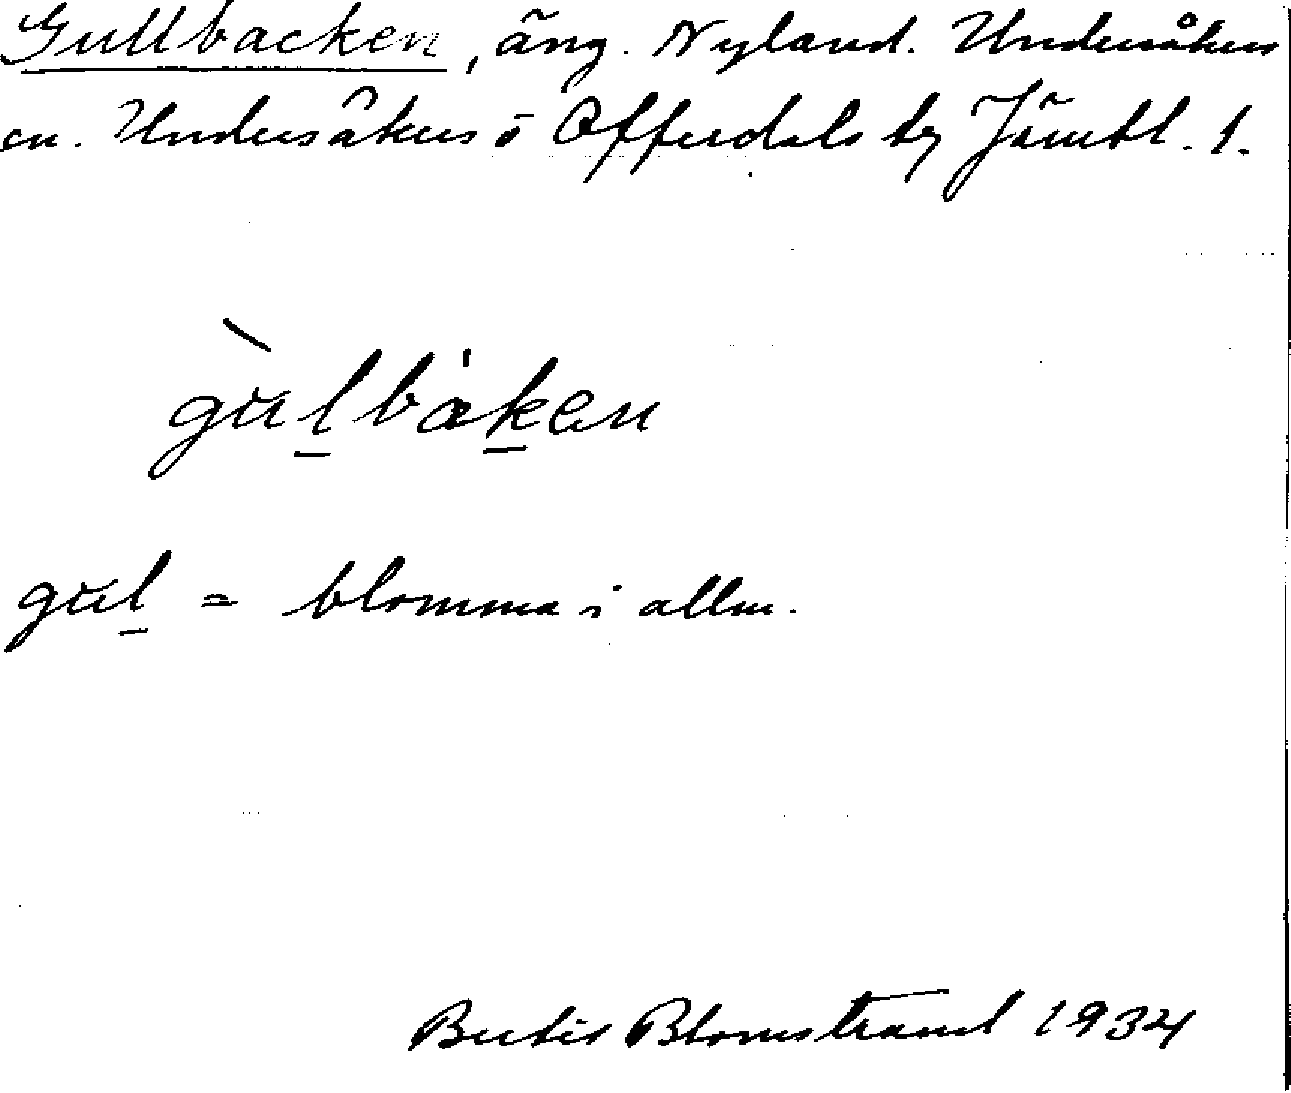 Gullbacken, äng. Nyland. Undersåkers
sn. Undersåkers o Offerdals tg Jämtl. l.
gulbaken
gul = blomma i allm.
Bertil Blomstrand 1934